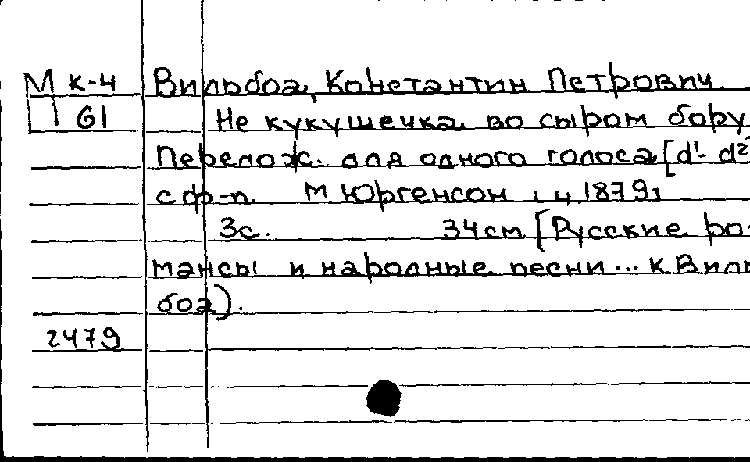 М к-4 Вильбоа, Константин Петрович.
П 61 Не кукушечка во сыром бору
Перелож. для одного голоса [d¹- d²
с ф-п. М. Юргенсон ц. 1879
3с. 34см [Русские ро-
мансы и народные песни... К. Виль
боа).
2479